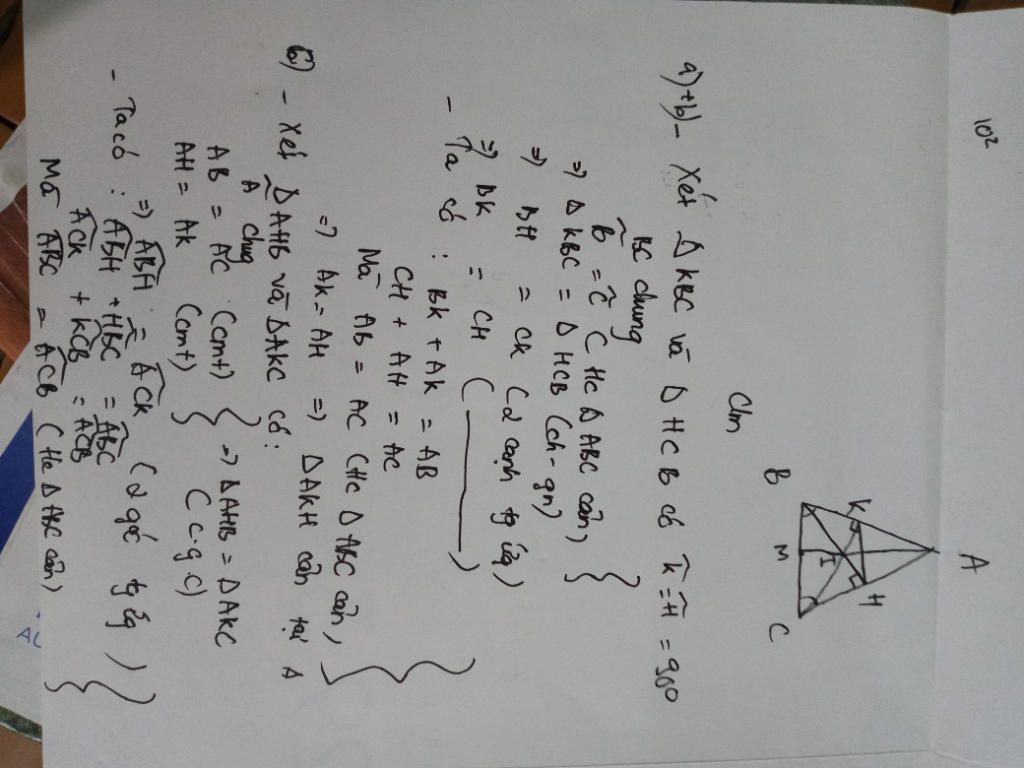 102
A
K
H
I
B
M
C
Clm
a)+b) - Xét Δ KBC và Δ HCB có K̂ = Ĥ = 90°
BC chung
B̂ = Ĉ (Hc Δ ABC cân)
=> Δ KBC = Δ HCB (ch - gn)
=> BH = CK (2 cạnh tg ứg)
=> BK = CH ( )
- Ta có : BK + AK = AB
CH + AH = AC
Mà AB = AC (Hc Δ ABC cân)
=> AK = AH => Δ AKH cân tại A
- Xét Δ AHB và Δ AKC có:
Â chung
AB = AC (cmt) => Δ AHB = Δ AKC
AH = AK (cmt) (c g c)
=> ABH = ACK (2 góc tg ứg)
- Ta có : ABH + HBC = ABC
ACK + KCB = ACB
Mà ABC = ACB (Hc Δ ABC cân)